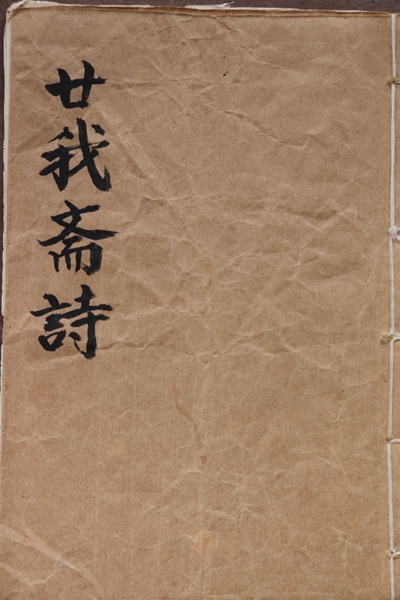 廿我斋詩